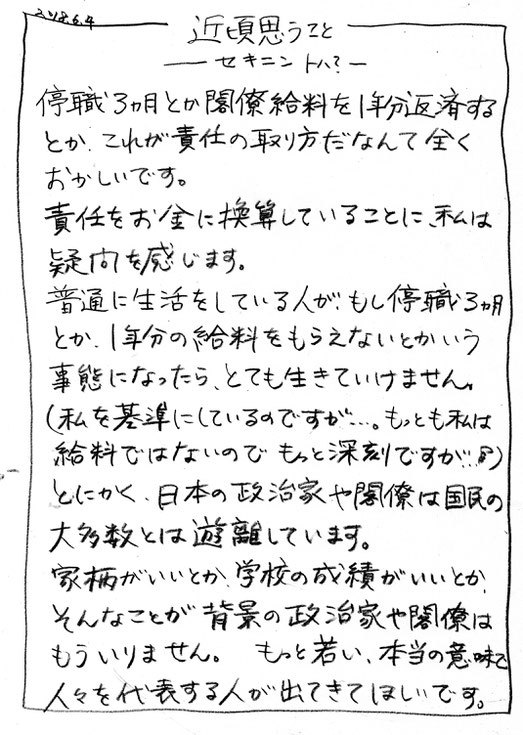 2018.6.4
近頃思うこと
― セキニントハ? ―
停職3ヵ月とか閣僚給料を1年分返済する
とか、これが責任の取り方だなんて全く
おかしいです。
責任をお金に換算していることに、私は
疑問を感じます。
普通に生活をしている人が、もし停職3ヵ月
とか、1年分の給料をもらえないとかいう
事態になったら、とても生きていけません。
(私を基準にしているのですが…。もっとも私は
給料ではないので もっと深刻ですが…)
とにかく、日本の政治家や閣僚は国民の
大多数とは遊離しています。
家柄がいいとか、学校の成績がいいとか、
そんなことが背景の政治家や閣僚は
もういりません。 もっと若い、本当の意味で
人々を代表する人が出てきてほしいです。